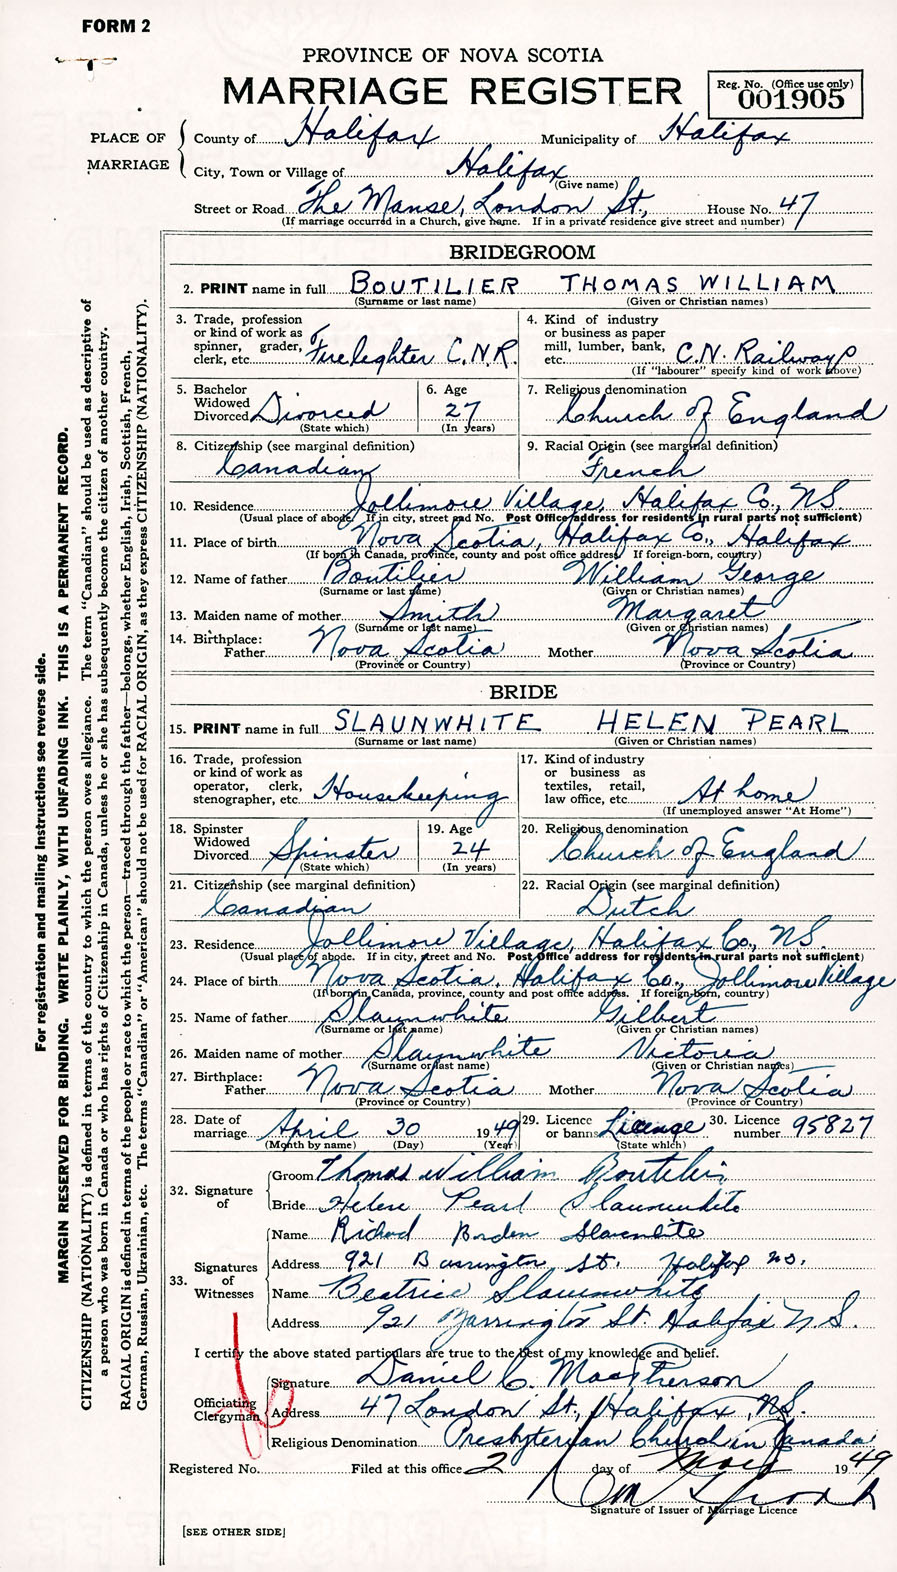 FORM 2
PROVINCE OF NOVA SCOTIA
MARRIAGE REGISTER
Reg. No. (Office use only)
001905
PLACE OF MARRIAGE
County of Halifax Municipality of Halifax
City, Town or Village of Halifax
(Give name)
Street or Road The Manse, London St., House No. 47
(If marriage occurred in a Church, give name. If in a private residence give street and number)
BRIDEGROOM
2. PRINT name in full BOUTILIER THOMAS WILLIAM
(Surname or last name) (Given or Christian names)
3. Trade, profession or kind of work as spinner, grader, clerk, etc. Firefighter C.N.R.
4. Kind of industry or business as paper mill, lumber, bank, etc. C.N. Railways
(If "labourer" specify kind of work above)
5. Bachelor Widowed Divorced Divorced
(State which)
6. Age 27
(In years)
7. Religious denomination
Church of England
8. Citizenship (see marginal definition)
Canadian
9. Racial Origin (see marginal definition)
French
10. Residence Jollimore Village, Halifax Co., N.S.
(Usual place of abode. If in city, street and No. Post Office address for residents in rural parts not sufficient)
11. Place of birth Nova Scotia, Halifax Co., Halifax
(If born in Canada, province, county and post office address. If foreign-born, country)
12. Name of father Boutilier William George
(Surname or last name) (Given or Christian names)
13. Maiden name of mother Smith Margaret
(Surname or last name) (Given or Christian names)
14. Birthplace:
Father Nova Scotia Mother Nova Scotia
(Province or Country) (Province or Country)
BRIDE
15. PRINT name in full SLAUNWHITE HELEN PEARL
(Surname or last name) (Given or Christian names)
16. Trade, profession or kind of work as operator, clerk, stenographer, etc. Housekeeping
17. Kind of industry or business as textiles, retail, law office, etc. At home
(If unemployed answer "At Home")
18. Spinster Widowed Divorced Spinster
(State which)
19. Age 24
(In years)
20. Religious denomination
Church of England
21. Citizenship (see marginal definition)
Canadian
22. Racial Origin (see marginal definition)
Dutch
23. Residence Jollimore Village, Halifax Co., N.S.
(Usual place of abode. If in city, street and No. Post Office address for residents in rural parts not sufficient)
24. Place of birth Nova Scotia, Halifax Co., Jollimore Village
(If born in Canada, province, county and post office address. If foreign-born, country)
25. Name of father Slaunwhite Gilbert
(Surname or last name) (Given or Christian names)
26. Maiden name of mother Slaunwhite Victoria
(Surname or last name) (Given or Christian names)
27. Birthplace:
Father Nova Scotia Mother Nova Scotia
(Province or Country) (Province or Country)
28. Date of marriage April 30 1949
(Month by name) (Day) (Year)
29. Licence or banns License
(State which)
30. Licence number 95827
32. Signature of
Groom Thomas William Boutilier
Bride Helen Pearl Slaunwhite
33. Signatures of Witnesses
Name Richard Borden Slaunwhite
Address 921 Barrington St. Halifax N.S.
Name Beatrice Slaunwhite
Address 921 Barrington St. Halifax N.S.
I certify the above stated particulars are true to the best of my knowledge and belief.
Officiating Clergyman
Signature Daniel C. MacPherson
Address 47 London St., Halifax, N.S.
Religious Denomination Presbyterian Church in Canada
Registered No. Filed at this office 2 day of May 1949
Signature of Issuer of Marriage Licence
[SEE OTHER SIDE]
For registration and mailing instructions see reverse side.
MARGIN RESERVED FOR BINDING. WRITE PLAINLY, WITH UNFADING INK. THIS IS A PERMANENT RECORD.
CITIZENSHIP (NATIONALITY) is defined in terms of the country to which the person owes allegiance. The term "Canadian" should be used as descriptive of
a person who was born in Canada or who has rights of Citizenship in Canada, unless he or she has subsequently become the citizen of another country.
RACIAL ORIGIN is defined in terms of the people or race to which the person—traced through the father—belongs, whether English, Irish, Scottish, French,
German, Russian, Ukrainian, etc. The terms "Canadian" or "American" should not be used for RACIAL ORIGIN, as they express CITIZENSHIP (NATIONALITY).